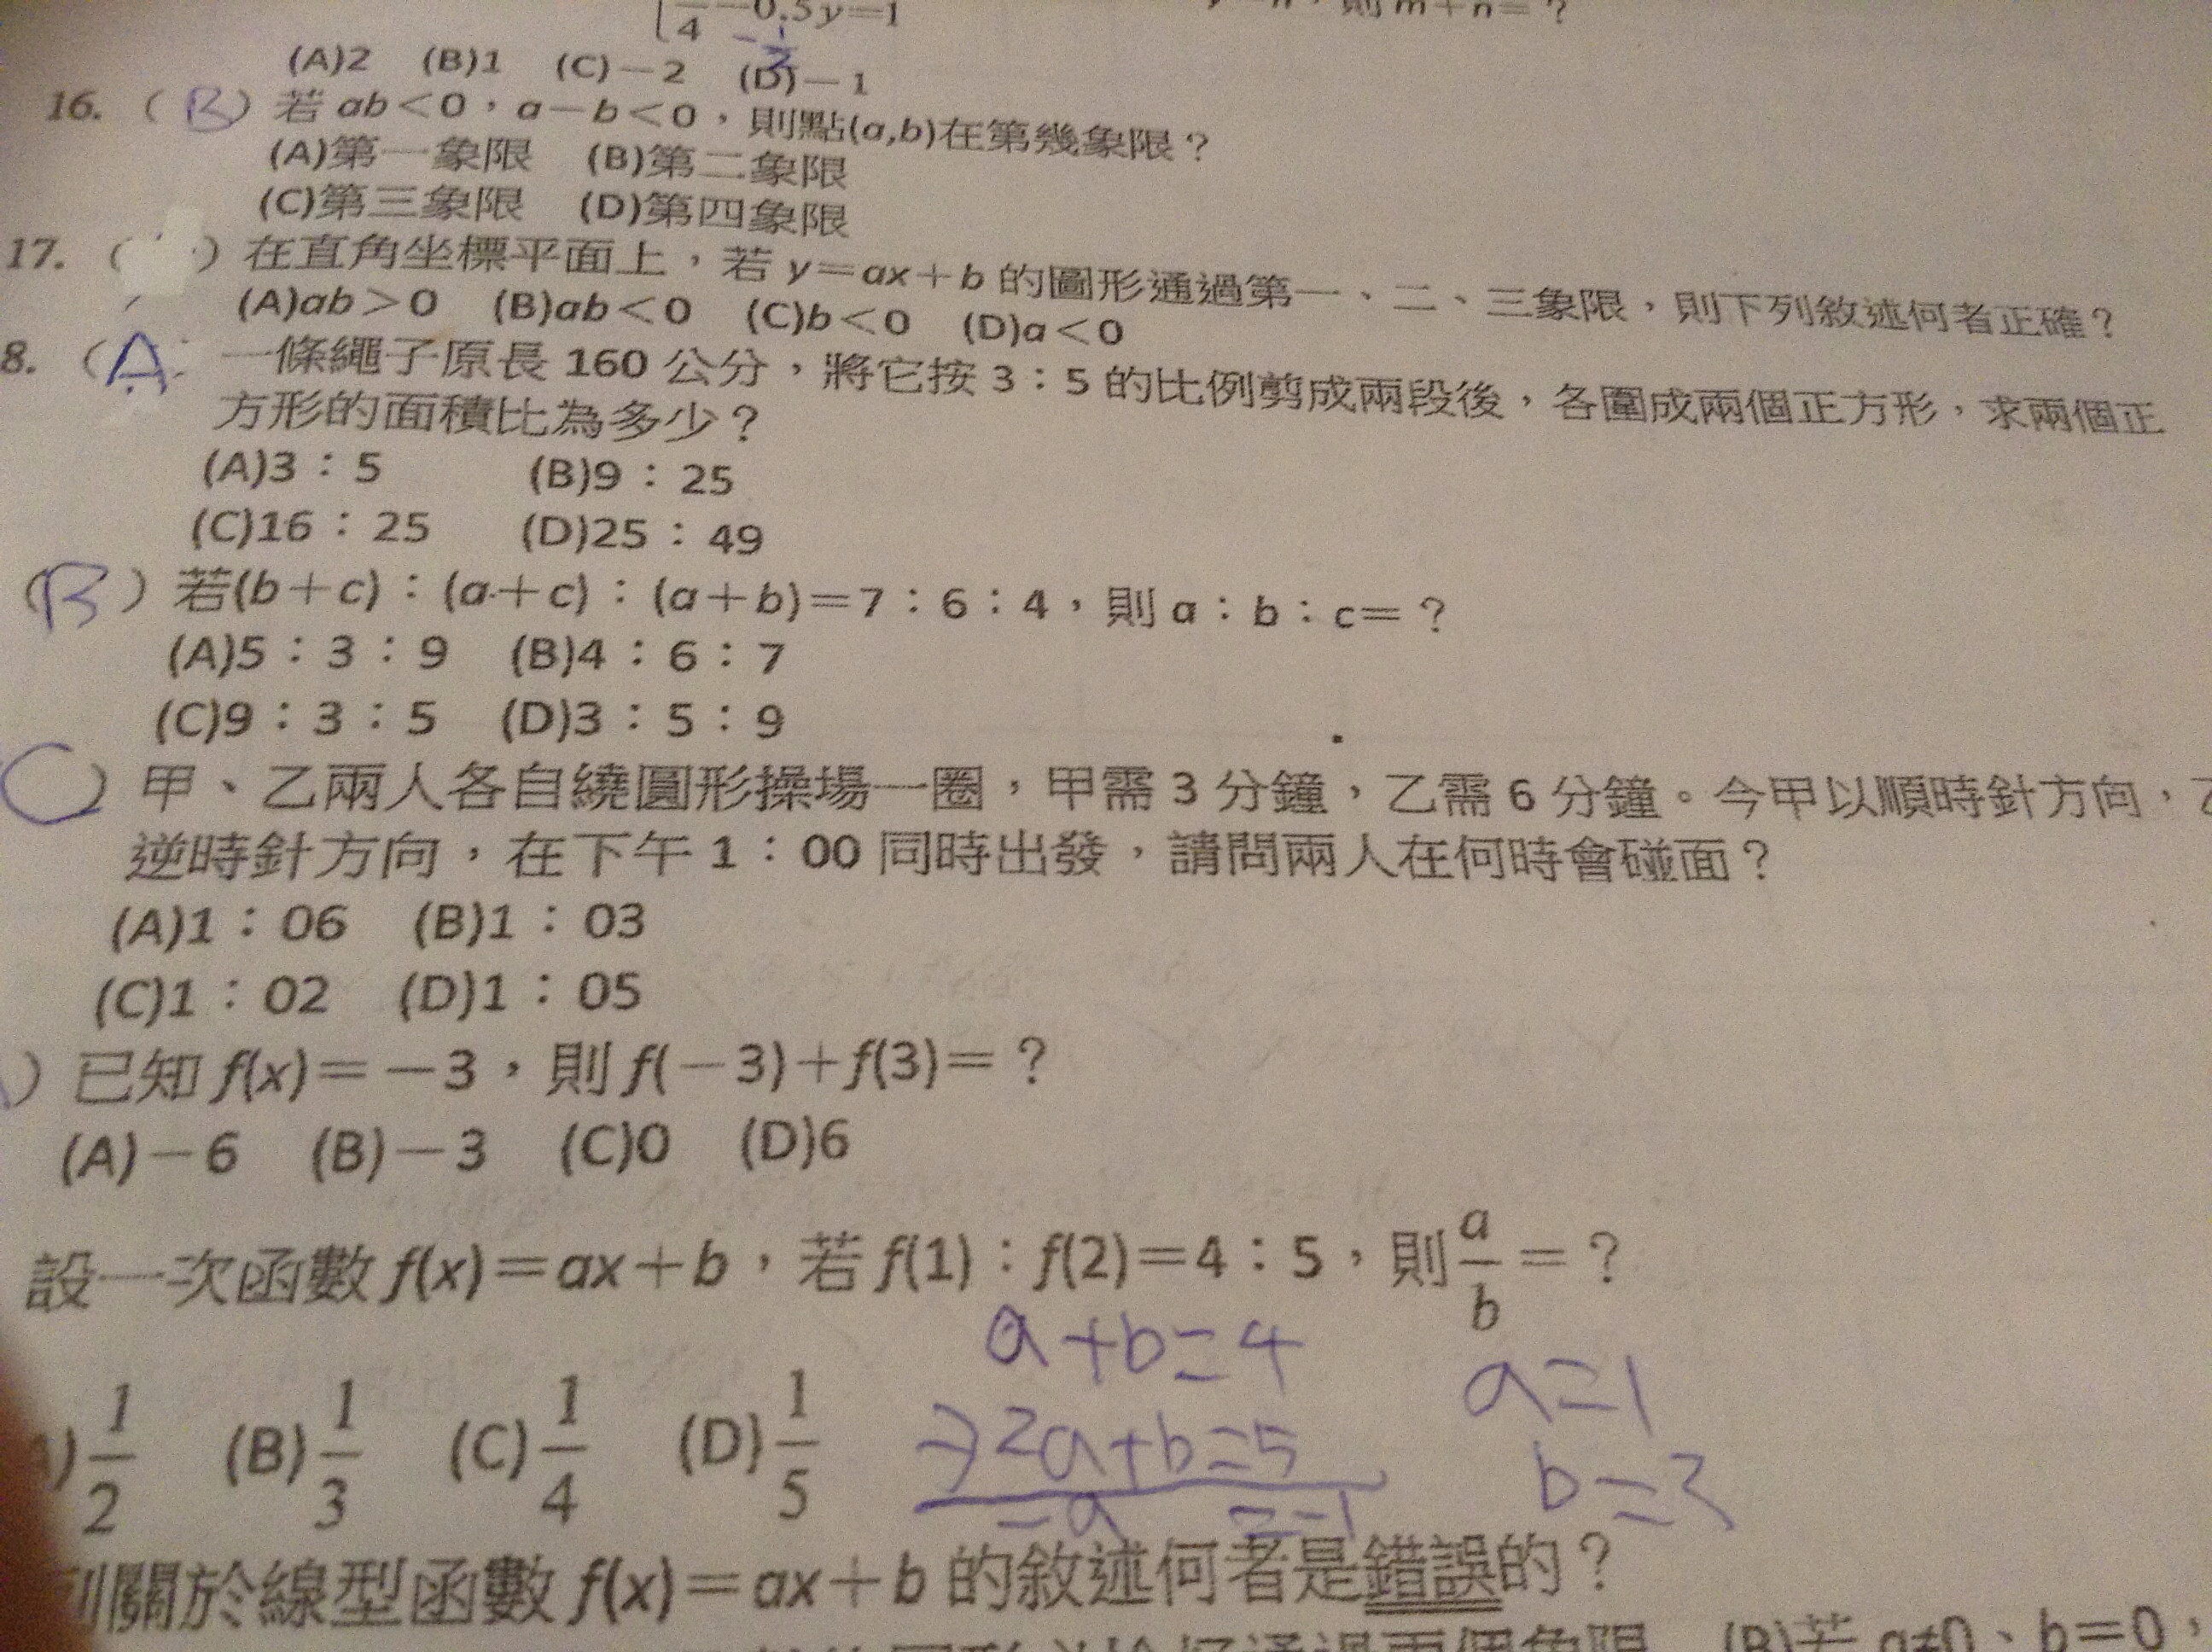 4 −0.5y=1
則m+n=？
(A)2 (B)1 (C)−2 (D)−1
16. ( B ) 若 ab<0，a−b<0，則點(a,b)在第幾象限？
(A)第一象限 (B)第二象限
(C)第三象限 (D)第四象限
17. ( ) 在直角坐標平面上，若 y=ax+b 的圖形通過第一、二、三象限，則下列敘述何者正確？
(A)ab>0 (B)ab<0 (C)b<0 (D)a<0
8. ( A 一條繩子原長 160 公分，將它按 3：5 的比例剪成兩段後，各圍成兩個正方形，求兩個正
方形的面積比為多少？
(A)3：5 (B)9：25
(C)16：25 (D)25：49
( B ) 若(b+c)：(a+c)：(a+b)=7：6：4，則 a：b：c=？
(A)5：3：9 (B)4：6：7
(C)9：3：5 (D)3：5：9
C ) 甲、乙兩人各自繞圓形操場一圈，甲需 3 分鐘，乙需 6 分鐘。今甲以順時針方向，乙
逆時針方向，在下午 1：00 同時出發，請問兩人在何時會碰面？
(A)1：06 (B)1：03
(C)1：02 (D)1：05
) 已知 f(x)=−3，則 f(−3)+f(3)=？
(A)−6 (B)−3 (C)0 (D)6
設一次函數 f(x)=ax+b，若 f(1)：f(2)=4：5，則 a/b =？
a+b=4
a=1
) 1/2 (B) 1/3 (C) 1/4 (D) 1/5
−) 2a+b=5
b=3
−a =−1
列關於線型函數 f(x)=ax+b 的敘述何者是錯誤的？
(B)若 a≠0、b=0，